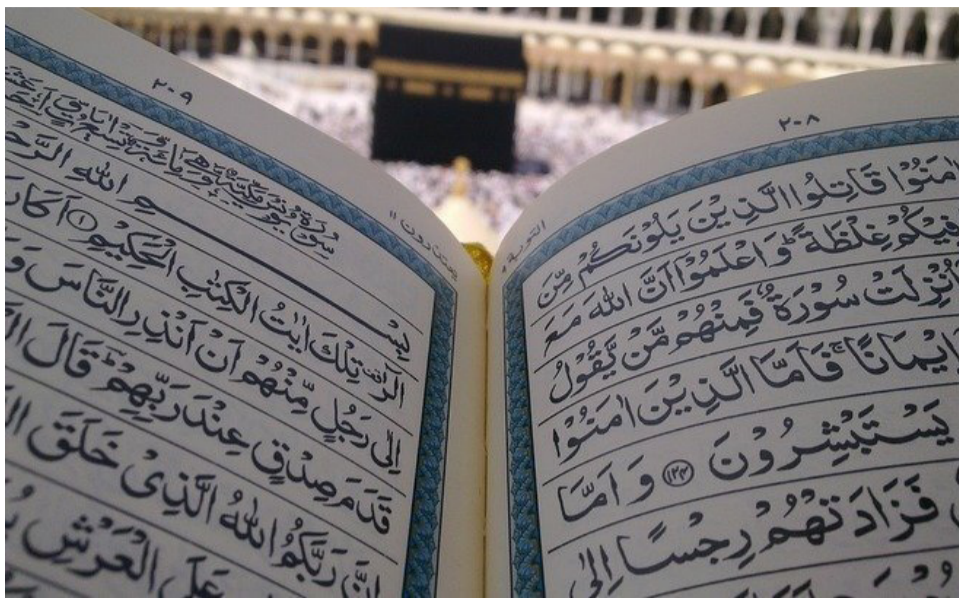 ٢٠٨
التوبة ٩
اٰمَنُوْا قَاتِلُوا الَّذِيْنَ يَلُوْنَكُمْ مِّنَ
فِيْكُمْ غِلْظَةً ؕ وَاعْلَمُوْۤا اَنَّ اللّٰهَ مَعَ
اُنْزِلَتْ سُوْرَةٌ فَمِنْهُمْ مَّنْ يَّقُوْلُ
اِيْمَانًا ۚ فَاَمَّا الَّذِيْنَ اٰمَنُوْا
يَسْتَبْشِرُوْنَ ﴿١٢٤﴾ وَاَمَّا
فَزَادَتْهُمْ رِجْسًا اِلٰى
٢٠٩
يعتذرون ١١
سُوْرَةُ يُوْنُسَ مَكِّيَّةٌ وَّهِيَ
بِسْمِ اللّٰهِ
الٓرٰ تِلْكَ اٰيٰتُ الْكِتٰبِ الْحَكِيْمِ ﴿١﴾ اَكَانَ
اِلٰى رَجُلٍ مِّنْهُمْ اَنْ اَنْذِرِ النَّاسَ وَ
قَدَمَ صِدْقٍ عِنْدَ رَبِّهِمْ ؕ قَالَ
اِنَّ رَبَّكُمُ اللّٰهُ الَّذِىْ خَلَقَ
عَلَى الْعَرْشِ